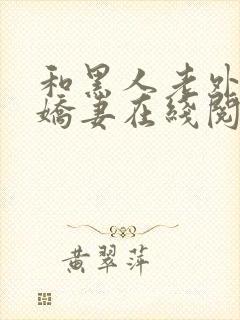 和黑人老外
娇妻在线阅
黄翠萍